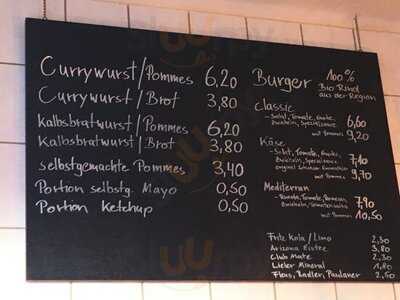 Currywurst/Pommes 6,20
Currywurst/Brot 3,80
Kalbsbratwurst/Pommes 6,20
Kalbsbratwurst/Brot 3,80
selbstgemachte Pommes 3,40
Portion selbstg. Mayo 0,50
Portion Ketchup 0,50
Burger 100%
Bio Rind
aus der Region
Classic
- Salat, Tomate, Gurke, 6,60
Zwiebeln, Spezialsauce
mit Pommes 9,20
Käse
- Salat, Tomate, Gurke, 7,10
Zwiebeln, Spezialsauce
mit Pommes 9,70
Mediterran
- Tomate, 7,90
Zwiebeln,
mit Pommes 10,50
Fritz Kola / Limo 2,30
Arizona Eistee 3,80
Club Mate 2,50
Mineral 1,80
Flens, Radler, Paulaner